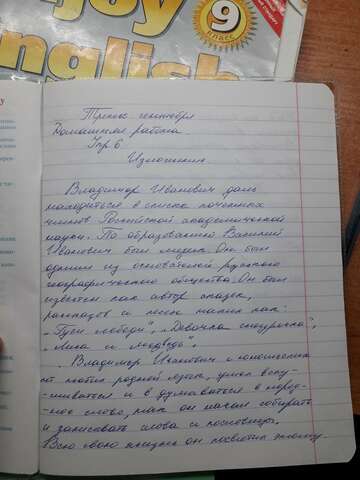 njoy
English
9
класс
Третье сентября
Домашняя работа.
Упр 6
Изложение
Владимир Иванович даль
находиться в списке почетных
членов Российской академической
науки. По образованию Василий
Иванович был медик. Он был
одним из основателей русского
географического общества. Он был
известен как автор сказок,
рассказов и песен таких как:
"Гуси лебеди", "Девочка снегурочка",
"Лиса и медведь".
Владимир Иванович с юношеских
лет любил родной язык, умел вслу-
шиваться и в думываться в народ-
ное слово, так он начал собирать
и записывать слова и пословицы.
Всю свою жизнь он посвятил этому.